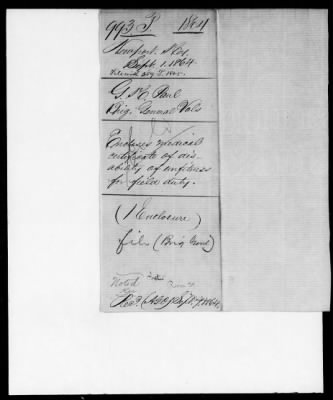 993 P. 1864
Newport,
Sept. 1. 1864
G. R. Paul
Brig. General Vols
Encloses medical
certificate of dis-
ability of unfitness
for field duty.
(1 Enclosure)
file (Brig Genl)
Noted
Rec'd (AGO) Sept. 7. 1864